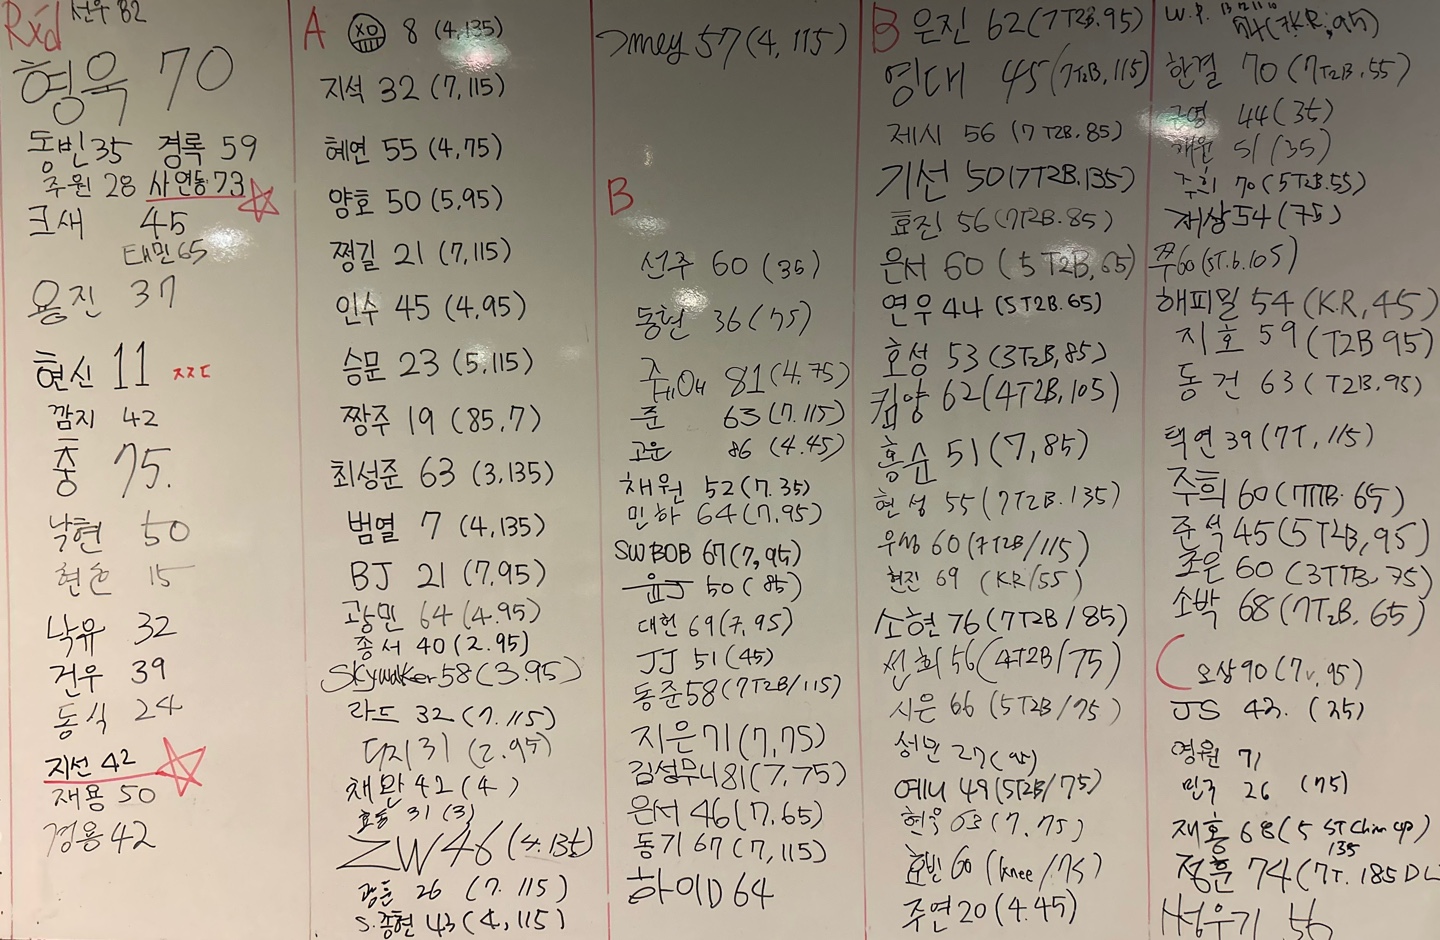 Rx'd 선우 82
형욱 70
동빈 35 경록 59
주원 28 사연동 73
크새 45
태민 65
용진 37
현신 11 ㅈㅈㄷ
깜지 42
충 75.
낙현 50
현손 15
낙유 32
건우 39
동식 24
지선 42
재용 50
경용 42
A XO 8 (4,135)
지석 32 (7,115)
혜연 55 (4,75)
양호 50 (5,95)
쩡길 21 (7,115)
인수 45 (4,95)
승문 23 (5,115)
짱주 19 (85,7)
최성준 63 (3,135)
범열 7 (4,135)
BJ 21 (7,95)
광민 64 (4.95)
종서 40 (2.95)
Skywalker 58 (3.95)
라드 32 (7.115)
다지 31 (2.95)
채완 42 (4)
31 (3)
ZW 46 (4.135)
광훈 26 (7.115)
S.종현 43 (4,115)
57 (4, 115)
B
선주 60 (35)
동현 36 (75)
쥬니어 81 (4.75)
준 63 (7.115)
고운 86 (4.45)
채원 52 (7.35)
민하 64 (7.95)
SWBOB 67 (7,95)
윤J 50 (85)
대헌 69 (7,95)
JJ 51 (45)
동준 58 (7T2B/115)
지은 71 (7,75)
김성무니 81 (7,75)
은서 46 (7,65)
동기 67 (7,115)
하이D 64
B 은진 62 (7T2B.95)
영대 45 (7T2B,115)
제시 56 (7T2B.85)
기선 50 (7T2B.135)
효진 56 (7T2B.85)
은서 60 (5T2B,65)
연우 44 (5T2B.65)
호성 53 (3T2B,85)
킴양 62 (4T2B,105)
홍순 51 (7,85)
현성 55 (7T2B.135)
우성 60 (7T2B/115)
현진 69 (KR/55)
소현 76 (7T2B/85)
선희 56 (4T2B/75)
시은 66 (5T2B/75)
성민 27
예니 49 (5T2B/75)
현우 63 (7.75)
효빈 60 (knee/75)
주연 20 (4.45)
W.P. 54 (7.KR,95)
한결 70 (7T2B,55)
근영 44 (35)
채원 51 (35)
주희 70 (5T2B.55)
재상 54 (75)
쭈 60 (5T.6.105)
해피밀 54 (KR,45)
지호 59 (T2B 95)
동건 63 (T2B.95)
택연 39 (7T,115)
주희 60 (7TTB.65)
준석 45 (5T2B,95)
초은 60 (3TTB,75)
소박 68 (7T2B,65)
오상 90 (7v.95)
JS 42. (35)
영원 71
민구 26 (75)
재홍 68 (5 ST Chin up)
135
정훈 74 (7T.185 DL
성우기 56